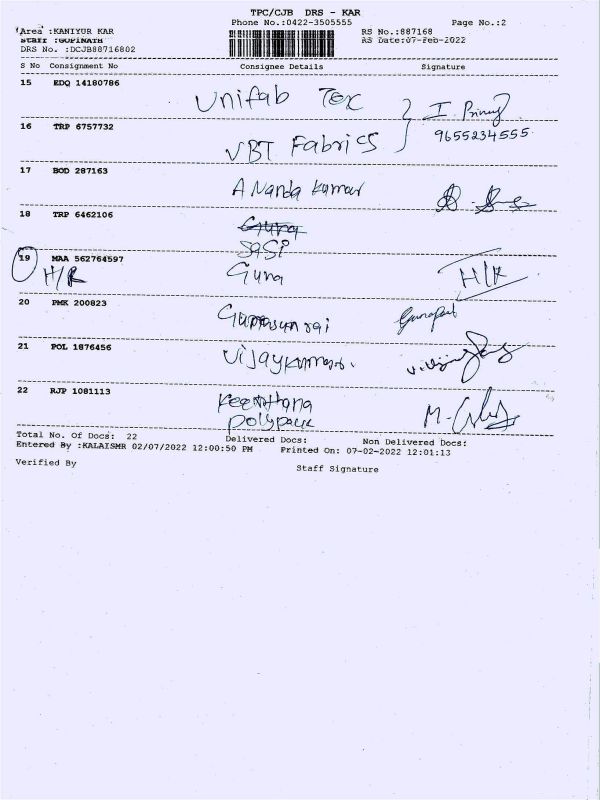 TPC/CJB DRS - KAR
Phone No.:0422-3505555 Page No.:2
Area :KANIYUR KAR RS No.:887168
Staff :GOPINATH RS Date:07-Feb-2022
DRS No. :DCJB88716802
S No Consignment No Consignee Details Signature
15 EDQ 14180786 Unifab Tex
16 TRP 6757732 VBT Fabrics 9655234555
17 BOD 287163 Ananda Kumar
18 TRP 6462106 Guna
Sasi
19 MAA 562764597 Guna H/R
H/R
20 PMK 200823
21 POL 1876456 Vijaykumar.
22 RJP 1081113 Keerthana
Polypack
Total No. Of Docs: 22 Delivered Docs: Non Delivered Docs:
Entered By :KALAISMR 02/07/2022 12:00:50 PM Printed On: 07-02-2022 12:01:13
Verified By Staff Signature